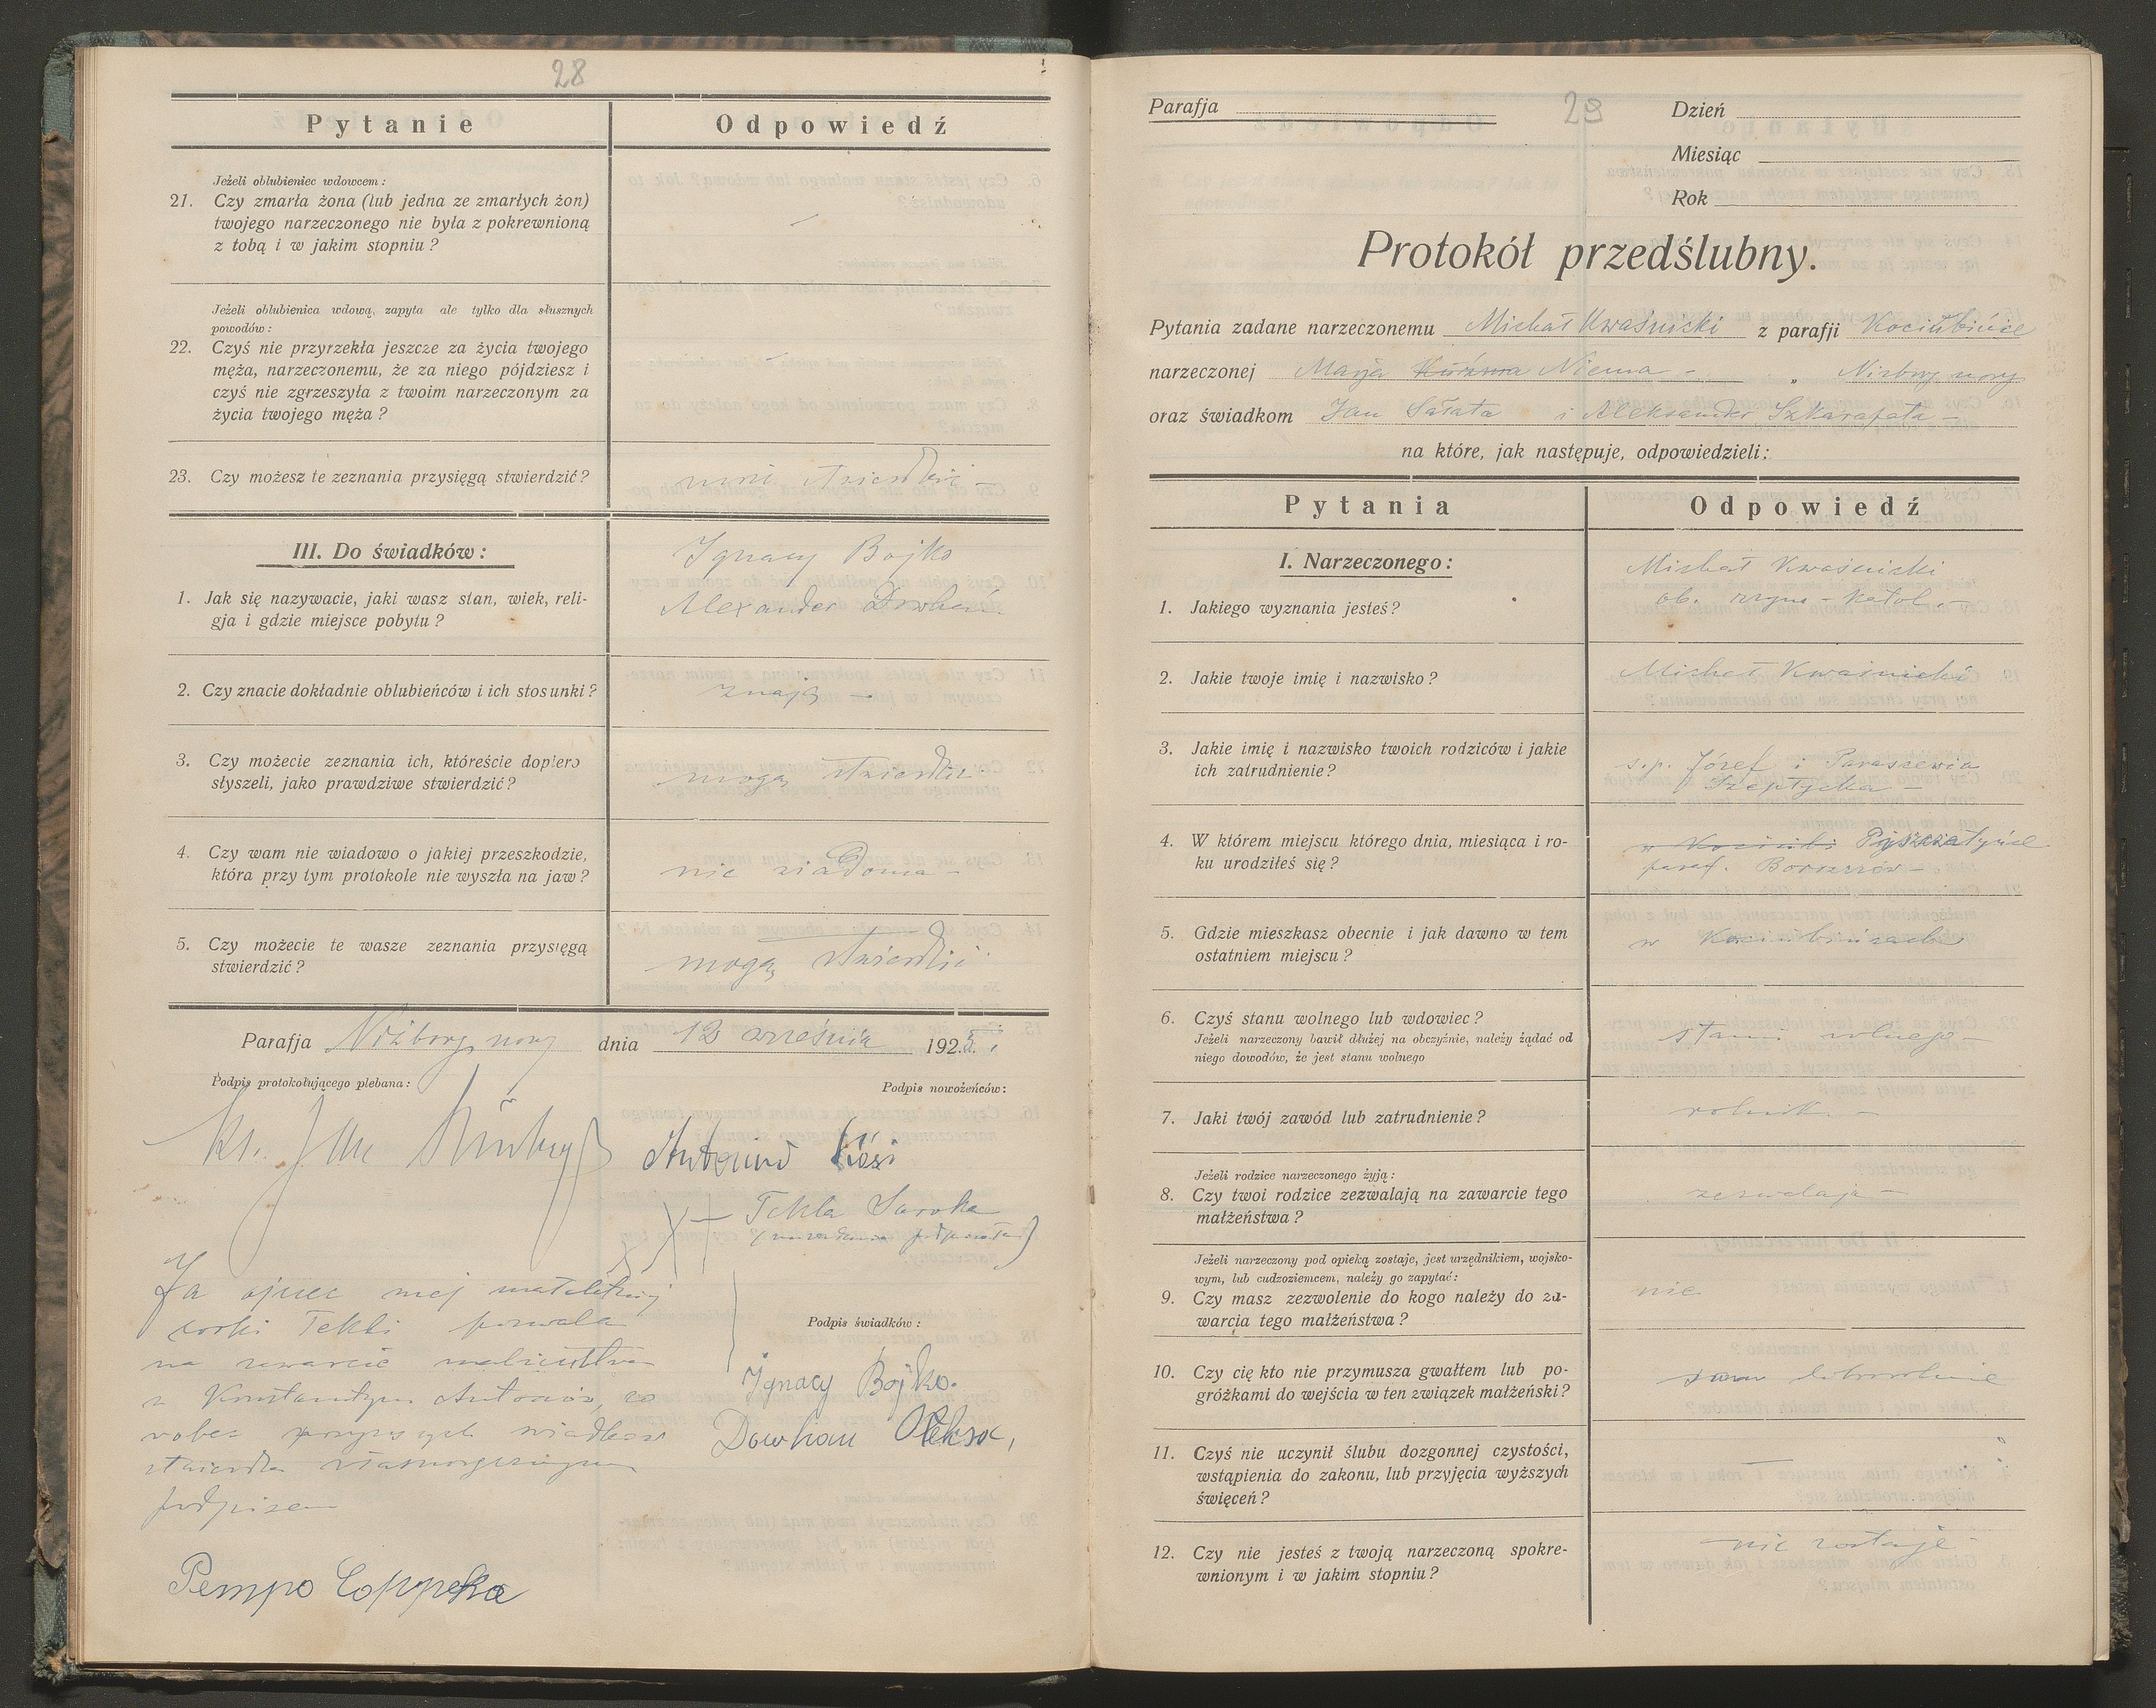 28
Pytanie
Odpowiedź
Jeżeli oblubieniec wdowcem:
21. Czy zmarła żona (lub jedna ze zmarłych żon)
twojego narzeczonego nie była z pokrewnioną
z tobą i w jakim stopniu?
—
Jeżeli oblubienica wdową, zapyta ale tylko dla słusznych
powodów:
22. Czyś nie przyrzekła jeszcze za życia twojego
męża, narzeczonemu, że za niego pójdziesz i
czyś nie zgrzeszyła z twoim narzeczonym za
życia twojego męża?
—
23. Czy możesz te zeznania przysięgą stwierdzić?
III. Do świadków:
Ignacy Bojko
1. Jak się nazywacie, jaki wasz stan, wiek, reli-
gja i gdzie miejsce pobytu?
Alexander Dowhań
2. Czy znacie dokładnie oblubieńców i ich stosunki?
znają —
3. Czy możecie zeznania ich, któreście dopiero
słyszeli, jako prawdziwe stwierdzić?
mogą stwierdzić
4. Czy wam nie wiadowo o jakiej przeszkodzie,
która przy tym protokole nie wyszła na jaw?
nic wiadoma —
5. Czy możecie te wasze zeznania przysięgą
stwierdzić?
mogą stwierdzić
Parafja Niżborg nowy dnia 12 września 192
Podpis protokołującego plebana:
Podpis nowożeńców:
Ks. Jan
Antoniw
Tekla Soroka
Ja ojciec mej małoletniej
corki Tekli pozwala
na zawarcie małżeństwa
z Konstantym Antoniów, co
wobec świadków
stwierdza własnoręcznym
podpisem
Podpis świadków:
Ignacy Bojko.
Dowhan Oleksa,
Петро Сорока
29
Parafja
Dzień
Miesiąc
Rok
Protokół przedślubny.
Pytania zadane narzeczonemu Michał Kwaśnicki z parafji Kociubińce
narzeczonej Marja Kuźma Niema — „ Nizborg nowy
oraz świadkom Jan Sałata i Aleksander Szkarapata —
na które, jak następuje, odpowiedzieli:
Pytania
Odpowiedź
I. Narzeczonego:
Michał Kwaśnicki
1. Jakiego wyznania jesteś?
ob. rzym-katol. —
2. Jakie twoje imię i nazwisko?
Michał Kwaśnicki
3. Jakie imię i nazwisko twoich rodziców i jakie
ich zatrudnienie?
s.p. Józef i Paraszewia
Szeptycka —
4. W którem miejscu którego dnia, miesiąca i ro-
ku urodziłeś się?
paraf. Borszczów —
5. Gdzie mieszkasz obecnie i jak dawno w tem
ostatniem miejscu?
w Kociubińcach
6. Czyś stanu wolnego lub wdowiec?
Jeżeli narzeczony bawił dłużej na obczyźnie, należy żądać od
niego dowodów, że jest stanu wolnego
stanu wolnego —
7. Jaki twój zawód lub zatrudnienie?
rolnik —
Jeżeli rodzice narzeczonego żyją:
8. Czy twoi rodzice zezwalają na zawarcie tego
małżeństwa?
zezwalają —
Jeżeli narzeczony pod opieką zostaje, jest urzędnikiem, wojsko-
wym, lub cudzoziemcem, należy go zapytać:
9. Czy masz zezwolenie do kogo należy do za-
warcia tego małżeństwa?
nie
10. Czy cię kto nie przymusza gwałtem lub po-
gróżkami do wejścia w ten związek małżeński?
sam dobrowolnie
11. Czyś nie uczynił ślubu dozgonnej czystości,
wstąpienia do zakonu, lub przyjęcia wyższych
święceń?
—
12. Czy nie jesteś z twoją narzeczoną spokre-
wnionym i w jakim stopniu?
nie zostaje —